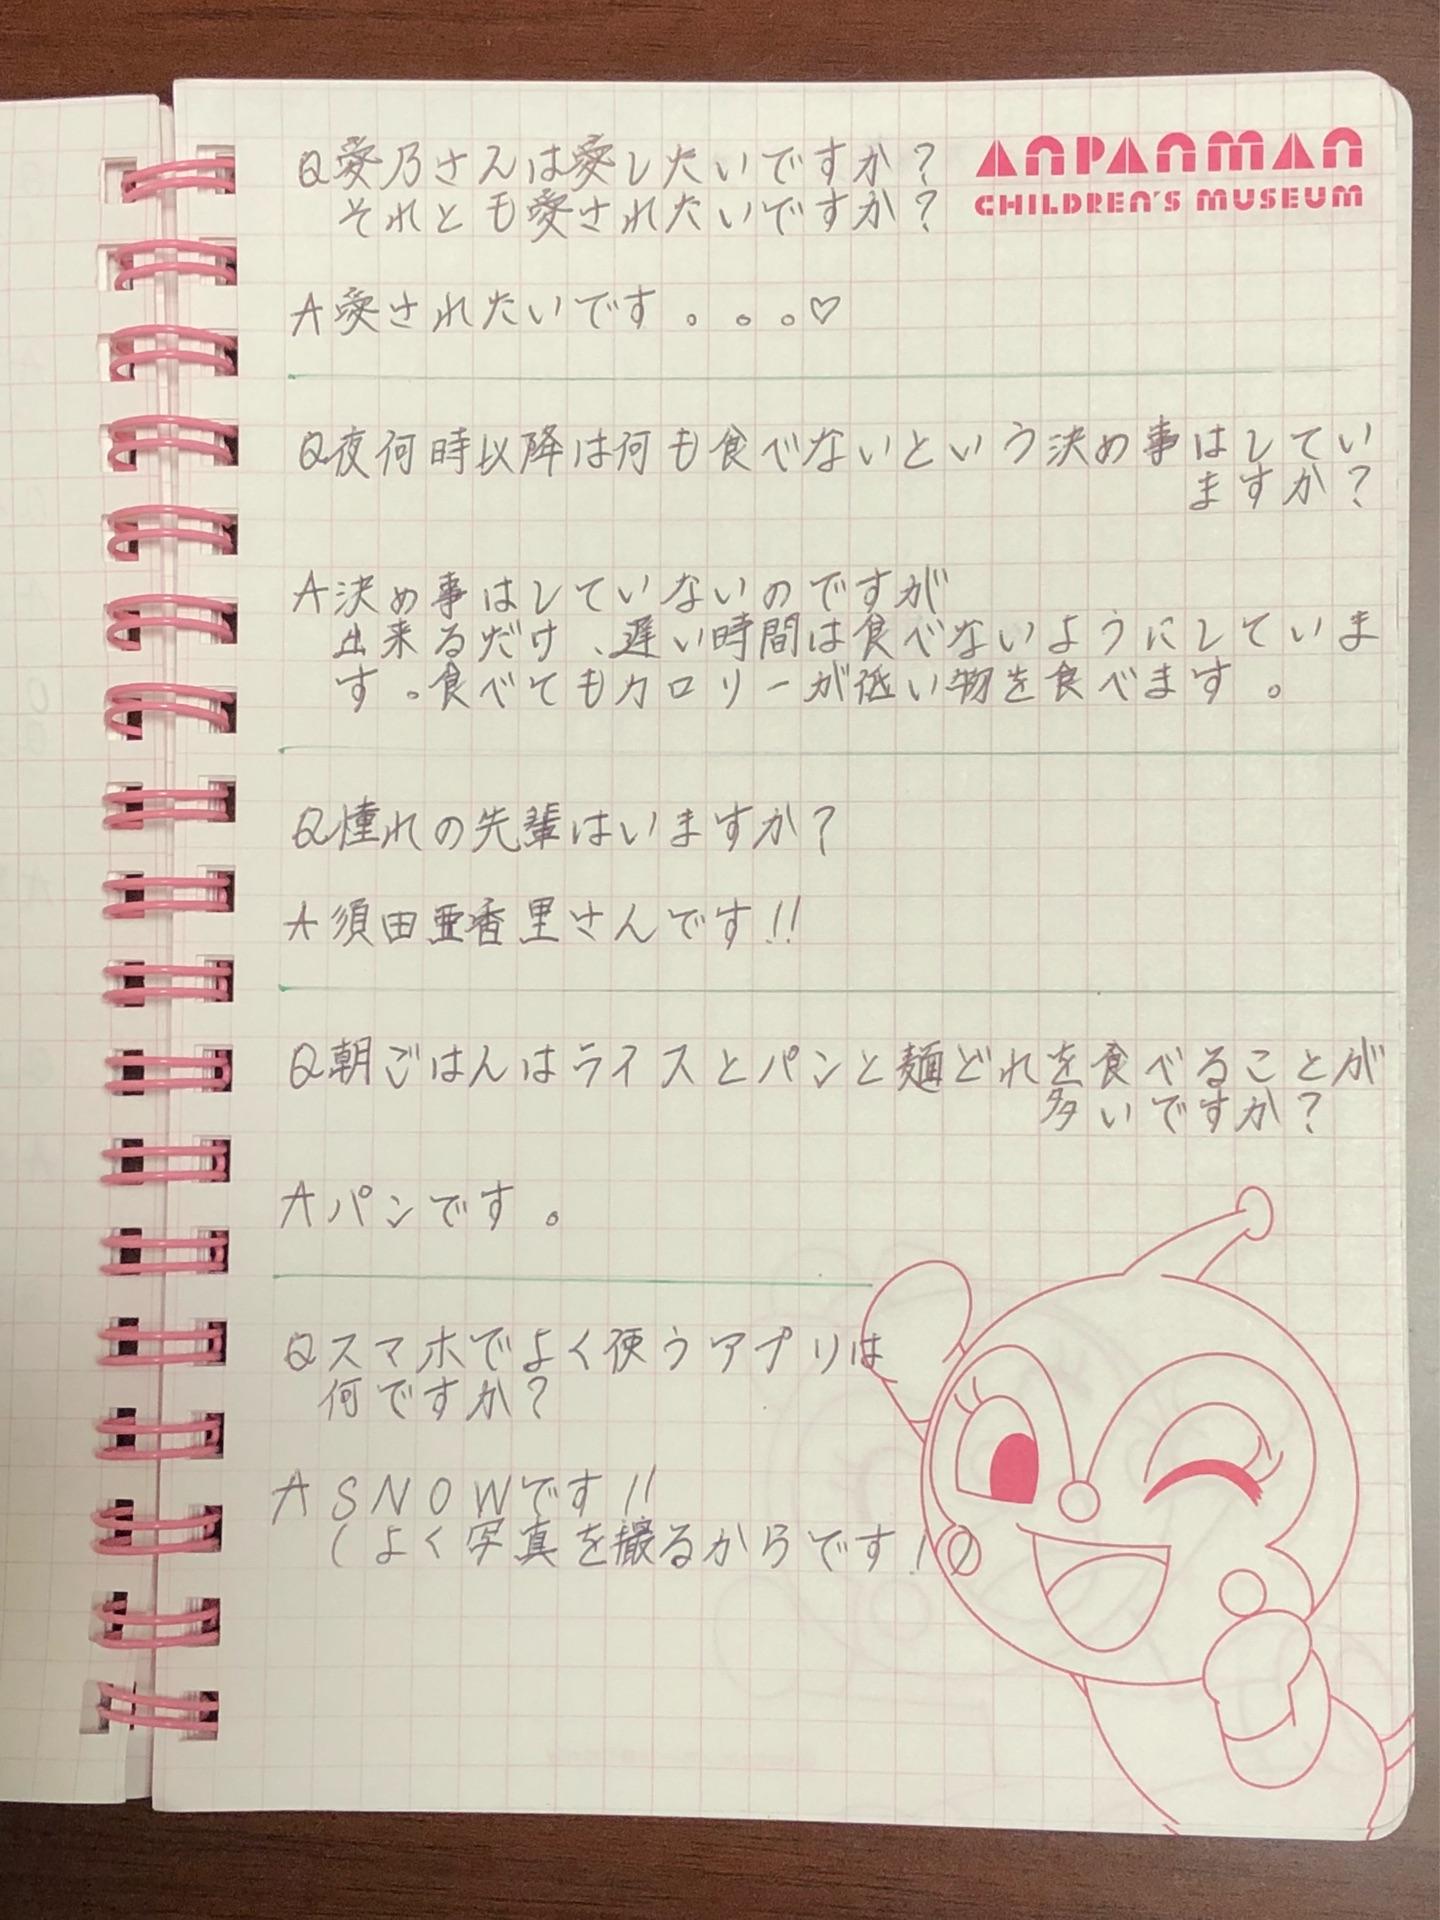 ANPANMAN
CHILDREN'S MUSEUM
Q愛乃さんは愛したいですか?
それとも愛されたいですか?
A愛されたいです。。。♡
Q夜何時以降は何も食べないという決め事はしてい
ますか?
A決め事はしていないのですが
出来るだけ、遅い時間は食べないようにしていま
す。食べてもカロリーが低い物を食べます。
Q憧れの先輩はいますか?
A須田亜香里さんです!!
Q朝ごはんはライスとパンと麺どれを食べることが
多いですか?
Aパンです。
Qスマホでよく使うアプリは
何ですか?
A SNOWです!!
(よく写真を撮るからです!)